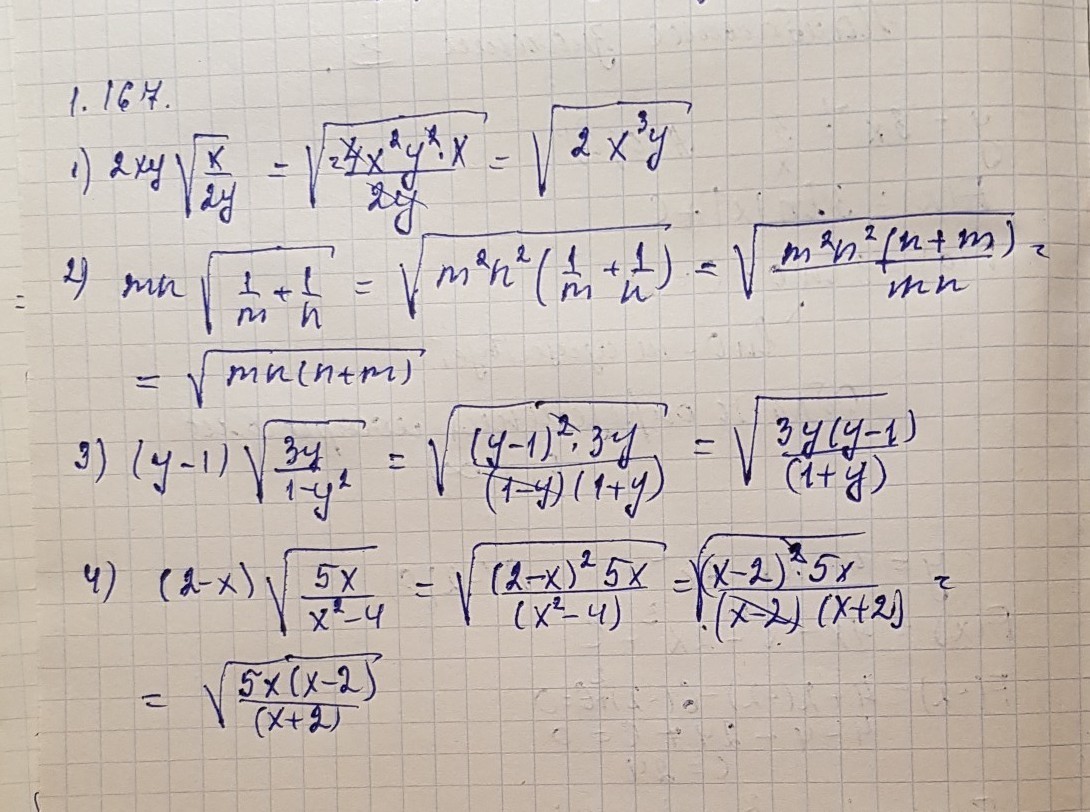 1.167.
1) 2xy√(x/2y) = √(24x²y²·x/2y) = √(2x³y)
2) mn√(1/m + 1/n) = √(m²n²(1/m + 1/n)) = √(m²n²(n+m)/mn) =
= √(mn(n+m))
3) (y-1)√(3y/1-y²) = √((y-1)²·3y/(1-y)(1+y)) = √(3y(y-1)/(1+y))
4) (2-x)√(5x/x²-4) = √((2-x)²5x/(x²-4)) = √((x-2)²·5x/(x-2)(x+2)) =
= √(5x(x-2)/(x+2))